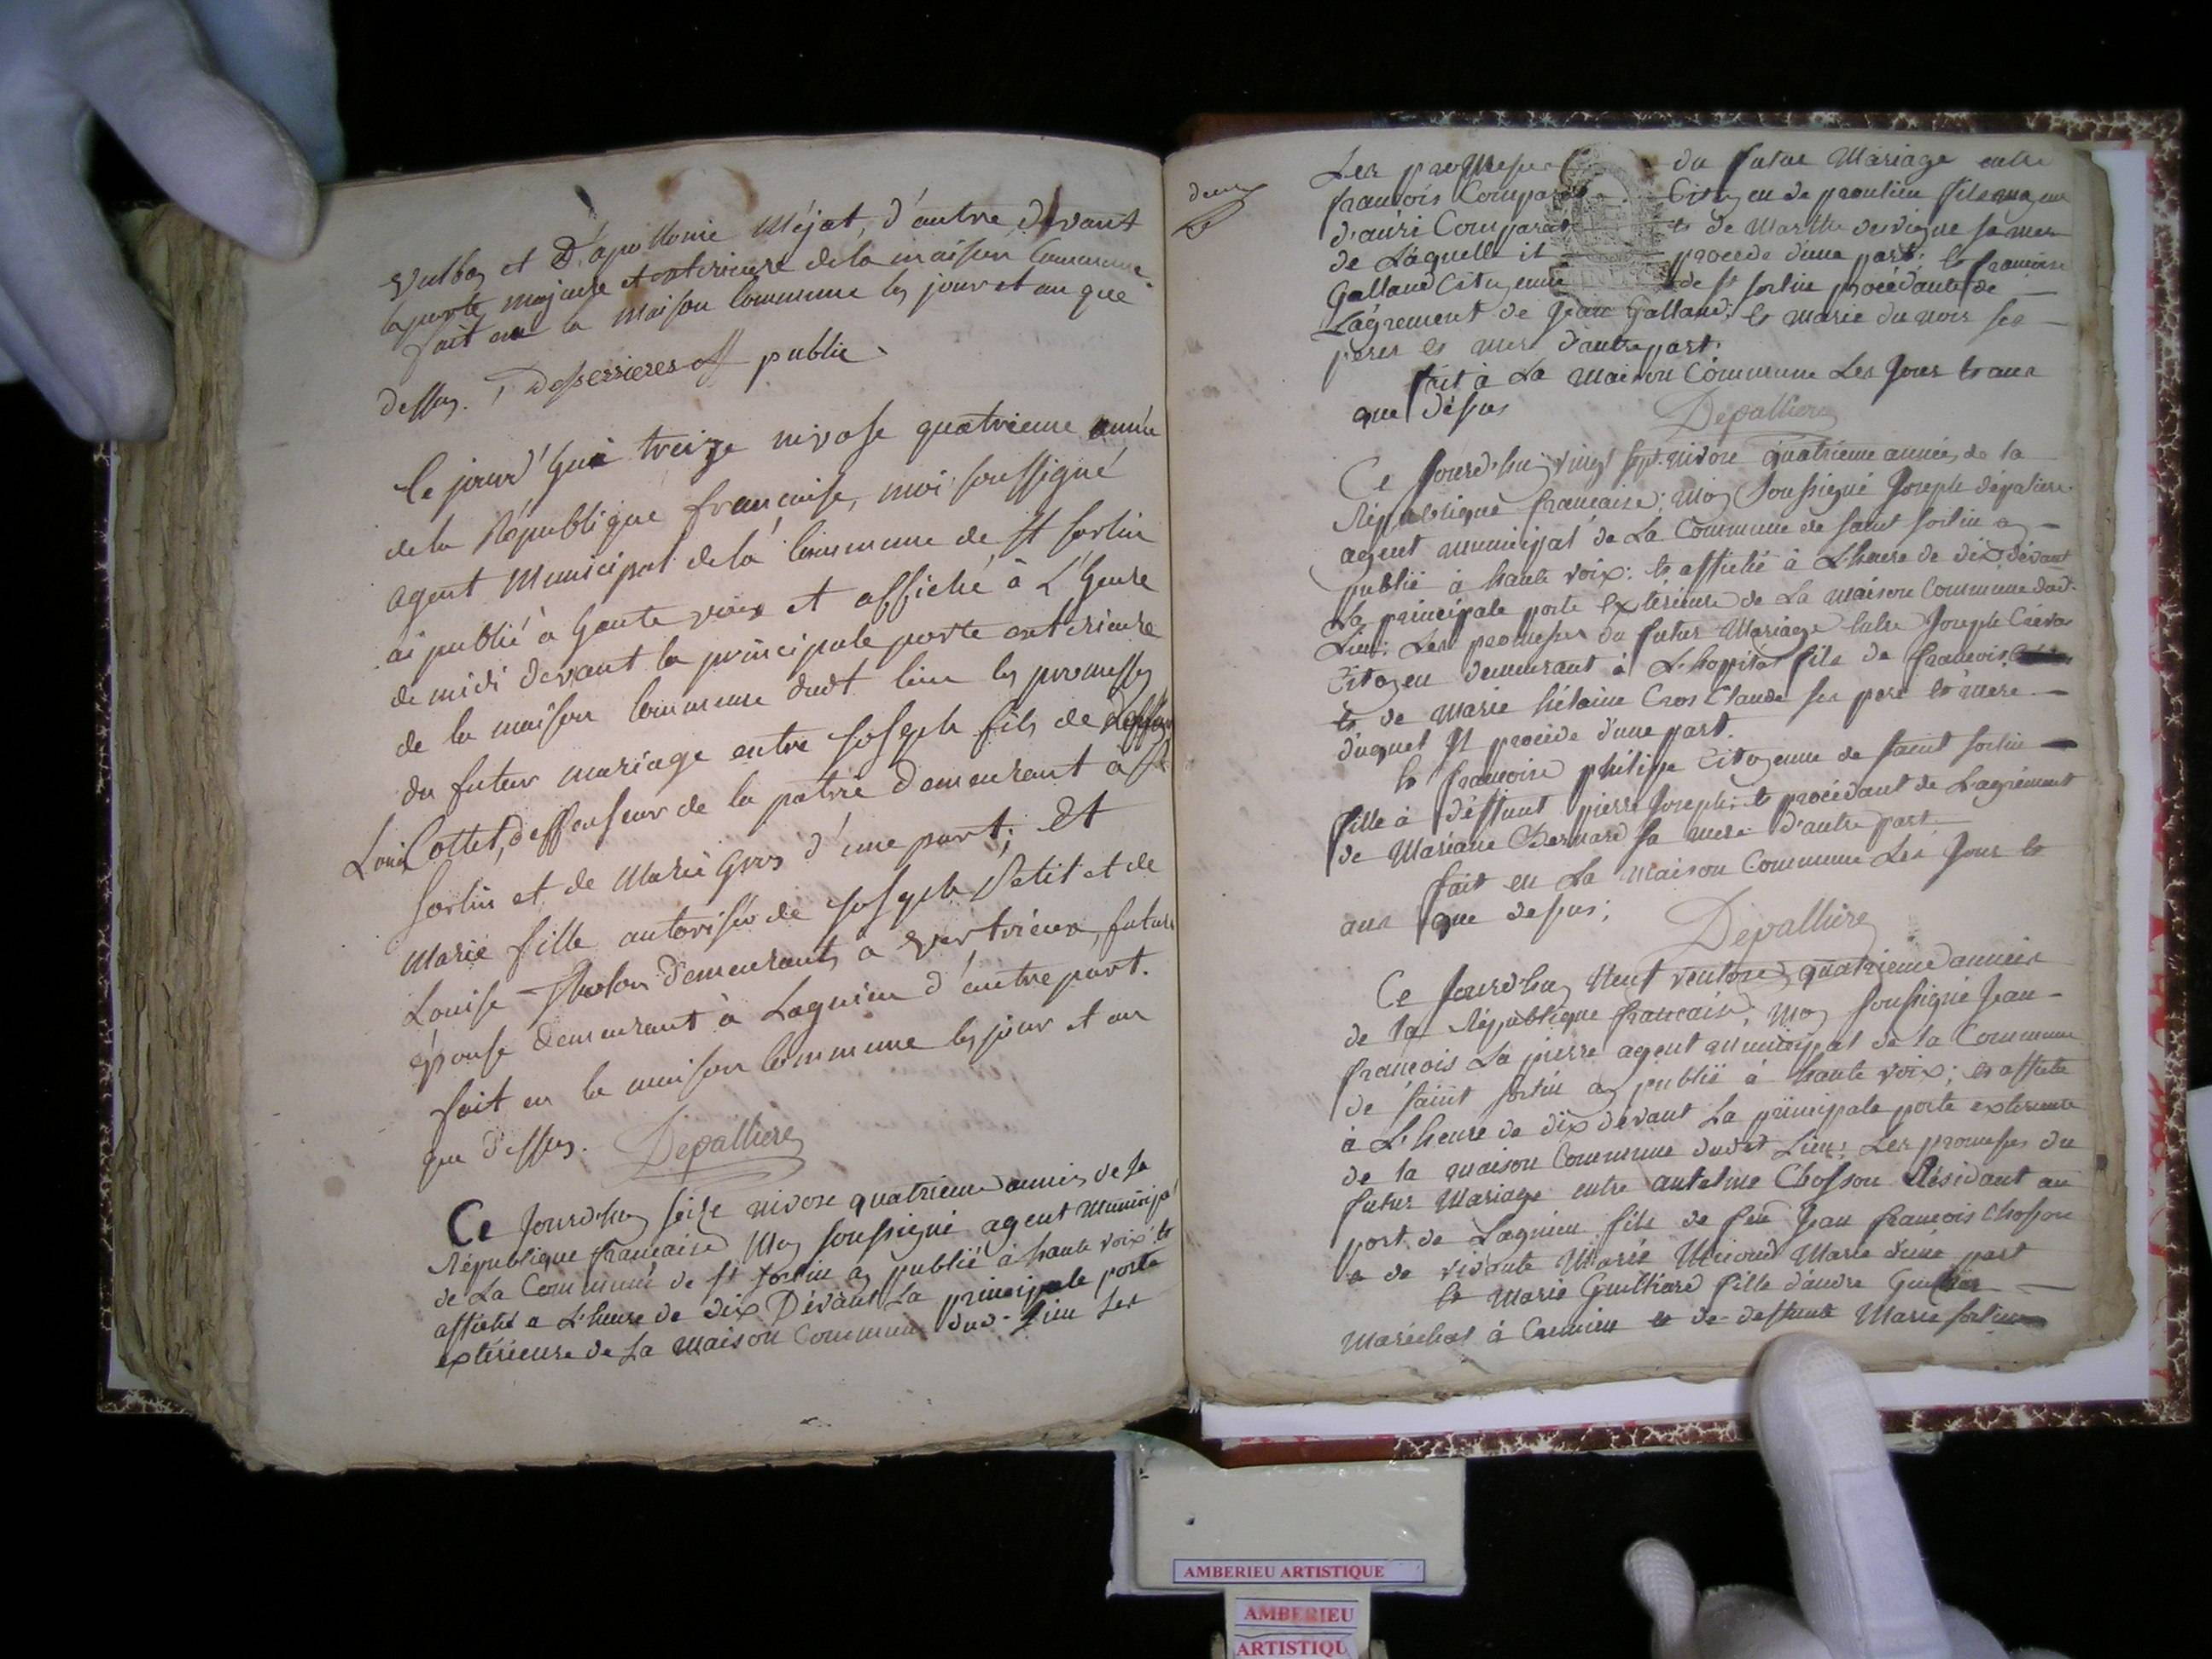 Vulbas et D'apollonie Méjat, d'autre devant
la porte majeure et exterieure de la maison Commune.
fait en la maison Commune les jour et an que
dessus. public
Ce jourd'hui treize nivose quatrieme année
de la République francaise, moi soussigné
agent Municipal de la Commune de St sorlin
ai publié a haute voix et affiché à L'heure
de midi devant la principale porte exterieure
de la maison Commune dudt lieu les promesses
du futeur mariage entre Joseph fils de deffun
Louis Cottet, deffenseur de la patrie demeurant à St
sorlin et de Marie Gros d'une part; Et
Marie fille autorisée de Joseph Petit et de
Louise demeurants a Vertrieux, future
épouse demeurant à Lagnieu d'autre part.
fait en la maison Commune les jour et an
que dessus. Depalliere
Ce Jourd'huy seize nivose quatrieme année de la
République francaise Moy soussigné agent Municipal
de La Commune de St sorlin ay publié à haute voix et
affiché a L'heure de dix Dévant La principale porte
extérieure de La maison Commune dud. Lieu Les
deux
Les promesses du futur Mariage entre
francois Comparat Citoyen de proulieu fils majeur
d'auri Comparat et de Marthe devigne sa mere
de Laquelle il procede d'une part; et francoise
Galland Citoyenne de St sorlin procédante de
L'agrement de Jean Galland; et marie du nois ses
peres et mere d'autre part.
fait à La maison Commune Les Jour et ans
que désus Depalliere
Ce Jourd'huy vingt sept nivose quatrieme année de la
République francaise; Moy Soussigné Joseph dépaliere
agent municipal de La Commune de saint sorlin ay
publié à haute voix; et affiché à L'heure de dix dévant
La principale porte Extérieure de La maison Commune dud.
Lieu; Les promesses du futur Mariage Entre Joseph
Citoyen demeurant à L'hopital fils de francois
et de Marie hélaine Cros Claude ses pere et mere
duquel Il procéde d'une part.
et francoise philippe Citoyenne de saint sorlin
fille à déffunt pierre Joseph; et procédant de L'agrément
de Mariane Bernard sa mere d'autre part
fait en La maison Commune Les Jour et
ans que desus; Depalliere
Ce Jourd'huy Neuf ventose quatrieme année
de la République francaise; Moy soussigné Jean
francois La pierre agent municipal de la Commune
de saint sorlin ay publié à haute voix; et affiché
à L'heure de dix devant La principale porte exterieure
de la maison Commune dudit Lieu; Les promesses du
futur Mariage entre antelme Chosson Résidant au
port de Lagnieu fils de feu Jean francois Chosson
et de vivante Marie d'une part
et Marie Guilliard fille d'andre
Maréchal à Cremieu et de deffunte Marie
AMBERIEU ARTISTIQUE
AMBERIEU
ARTISTIQU